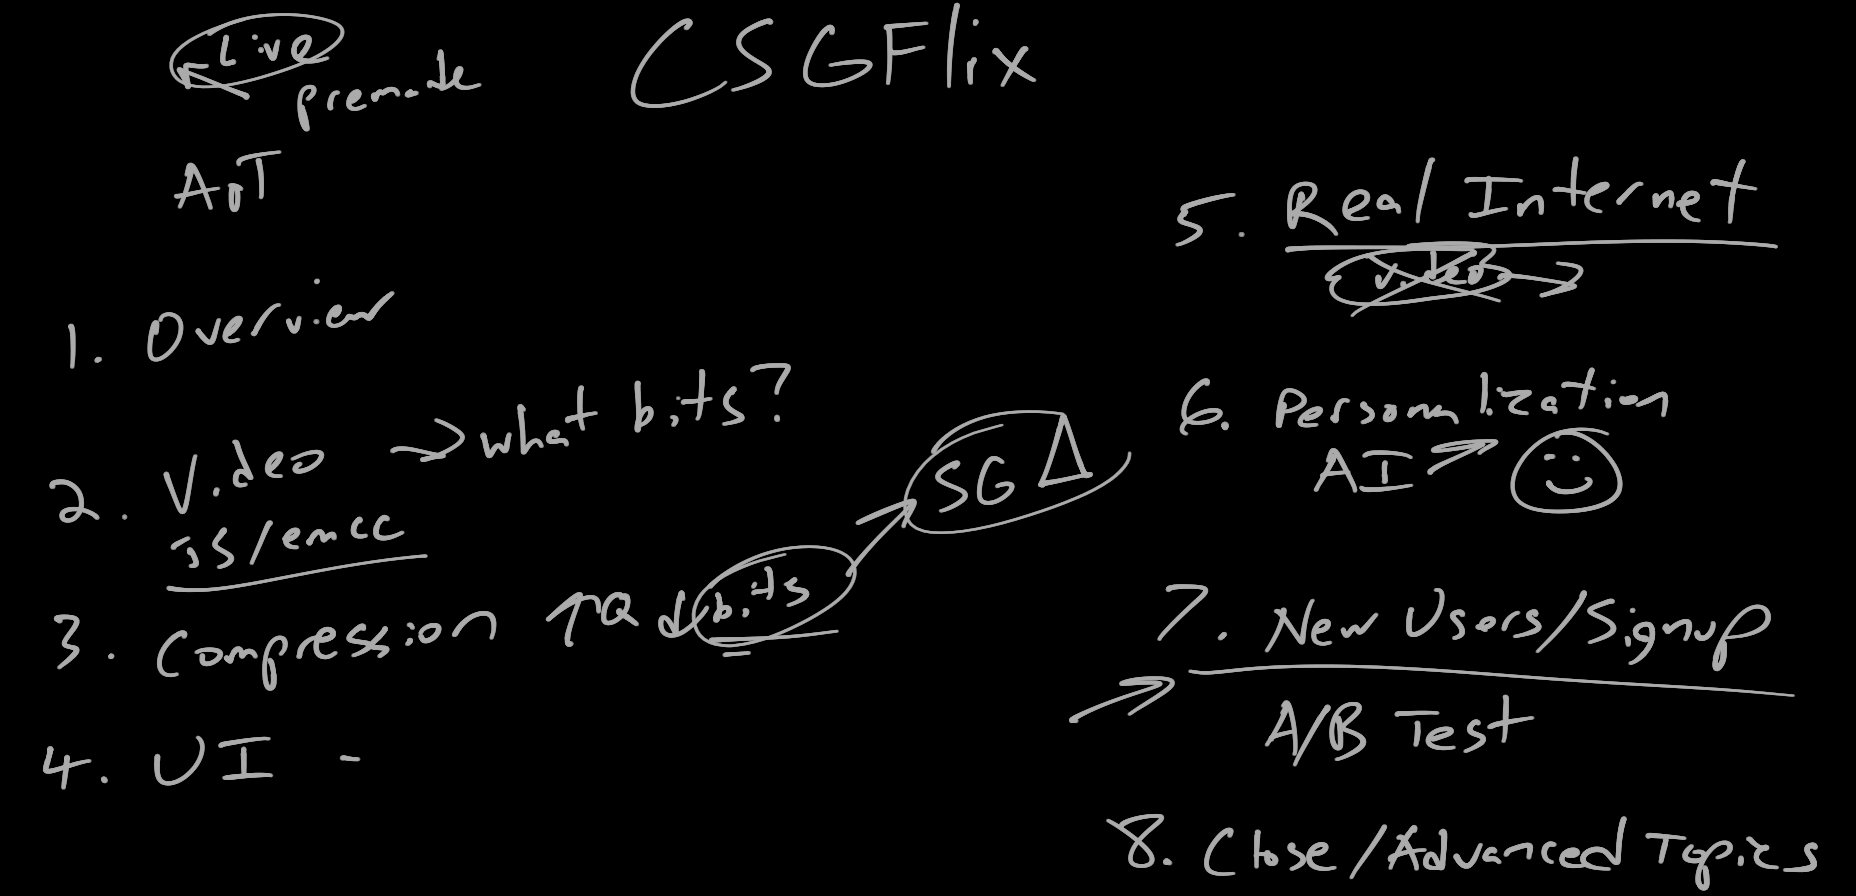 CSGFlix
Live
premade
AoT
1. Overview
2. Video → what bits?
JS/emcc
3. Compression ↑Q ↓bits → SG Δ
4. UI -
5. Real Internet
video →
6. Personalization
AI →
7. New Users/Signup
A/B Test
8. Close/Advanced Topics